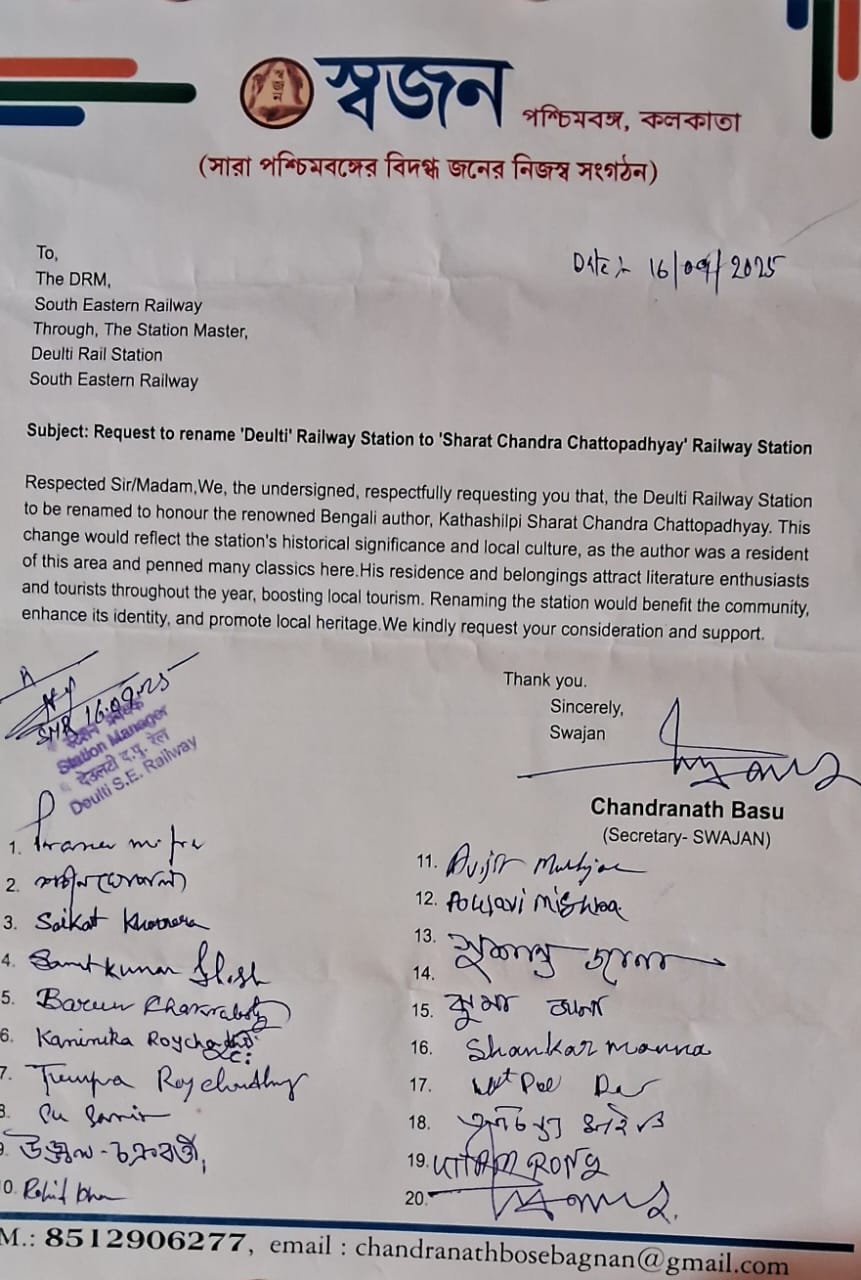 স্বজন পশ্চিমবঙ্গ, কলকাতা
(সারা পশ্চিমবঙ্গের বিদগ্ধ জনের নিজস্ব সংগঠন)
Date :- 16/09/2025
To,
The DRM,
South Eastern Railway
Through, The Station Master,
Deulti Rail Station
South Eastern Railway
Subject: Request to rename 'Deulti' Railway Station to 'Sharat Chandra Chattopadhyay' Railway Station
Respected Sir/Madam,We, the undersigned, respectfully requesting you that, the Deulti Railway Station
to be renamed to honour the renowned Bengali author, Kathashilpi Sharat Chandra Chattopadhyay. This
change would reflect the station's historical significance and local culture, as the author was a resident
of this area and penned many classics here.His residence and belongings attract literature enthusiasts
and tourists throughout the year, boosting local tourism. Renaming the station would benefit the community,
enhance its identity, and promote local heritage.We kindly request your consideration and support.
Thank you.
Sincerely,
Swajan
Chandranath Basu
(Secretary- SWAJAN)
SMR 16.09.25
स्टेशन प्रबंधक
Station Manager
देउलटी द.पू. रेल
Deulti S.E. Railway
1.
2.
3. Saikat
4. Kumar
5. Barun Chakraborty
6. Kaninika Roychoudhury
7. Tumpa Roychoudhury
8.
9. উজ্জ্বল চক্রবর্তী
10.
11. Avijit
12. Mishra
13.
14.
15. ঝুমা
16. Shankar Manna
17.
18.
19. UTTAM
20.
M.: 8512906277, email : chandranathbosebagnan@gmail.com